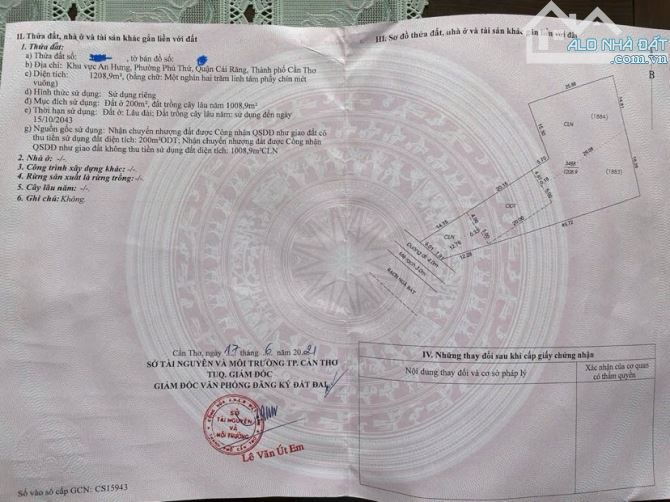 II. Thửa đất, nhà ở và tài sản khác gắn liền với đất
1. Thửa đất:
a) Thửa đất số: , tờ bản đồ số:
b) Địa chỉ: Khu vực An Hưng, Phường Phú Thứ, Quận Cái Răng, Thành phố Cần Thơ
c) Diện tích: 1208,9m², (bằng chữ: Một nghìn hai trăm linh tám phẩy chín mét
vuông)
d) Hình thức sử dụng: Sử dụng riêng
đ) Mục đích sử dụng: Đất ở 200m², đất trồng cây lâu năm 1008,9m²
e) Thời hạn sử dụng: Đất ở: Lâu dài; Đất trồng cây lâu năm: sử dụng đến ngày
15/10/2043
g) Nguồn gốc sử dụng: Nhận chuyển nhượng đất được Công nhận QSDĐ như giao đất có
thu tiền sử dụng đất diện tích: 200m²ODT; Nhận chuyển nhượng đất được Công nhận
QSDĐ như giao đất không thu tiền sử dụng đất diện tích: 1008,9m²CLN
2. Nhà ở: -/-
3. Công trình xây dựng khác: -/-
4. Rừng sản xuất là rừng trồng: -/-
5. Cây lâu năm: -/-
6. Ghi chú: Không.
Cần Thơ, ngày 17 tháng 6 năm 2021
SỞ TÀI NGUYÊN VÀ MÔI TRƯỜNG TP. CẦN THƠ
TUQ. GIÁM ĐỐC
GIÁM ĐỐC VĂN PHÒNG ĐĂNG KÝ ĐẤT ĐAI
SỞ
TÀI NGUYÊN
VÀ
MÔI TRƯỜNG
Lê Văn Út Em
Số vào sổ cấp GCN: CS15943
III. Sơ đồ thửa đất, nhà ở và tài sản khác gắn liền với đất
ALO NHÀ ĐẤT
B
25.88
14.91
CLN
(1884)
(1883)
1208.9
20.15
ODT
20.00
14.15
CLN
12.76
12.28
Đường đi 4.0m
RẠCH NGÃ BÁT
IV. Những thay đổi sau khi cấp giấy chứng nhận
Nội dung thay đổi và cơ sở pháp lý
Xác nhận của cơ quan
có thẩm quyền